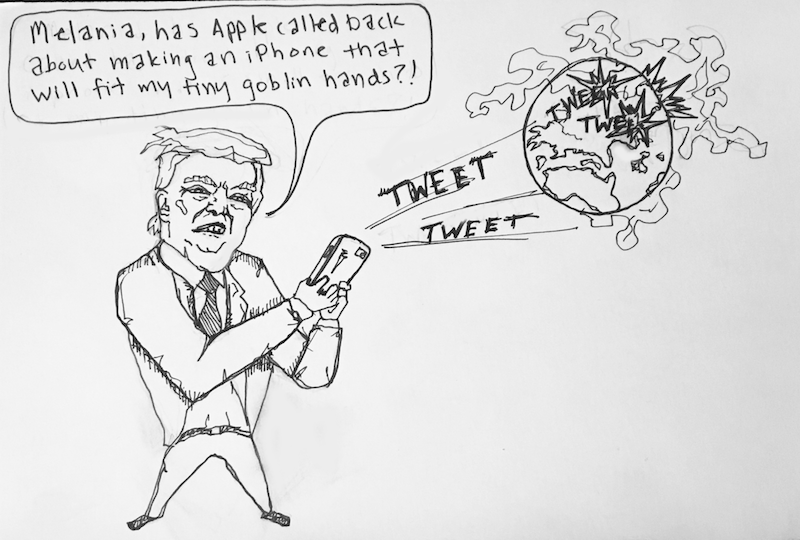 Melania, has Apple called back
about making an iPhone that
will fit my tiny goblin hands?!
TWEET
TWEET
TWEET
TWEET